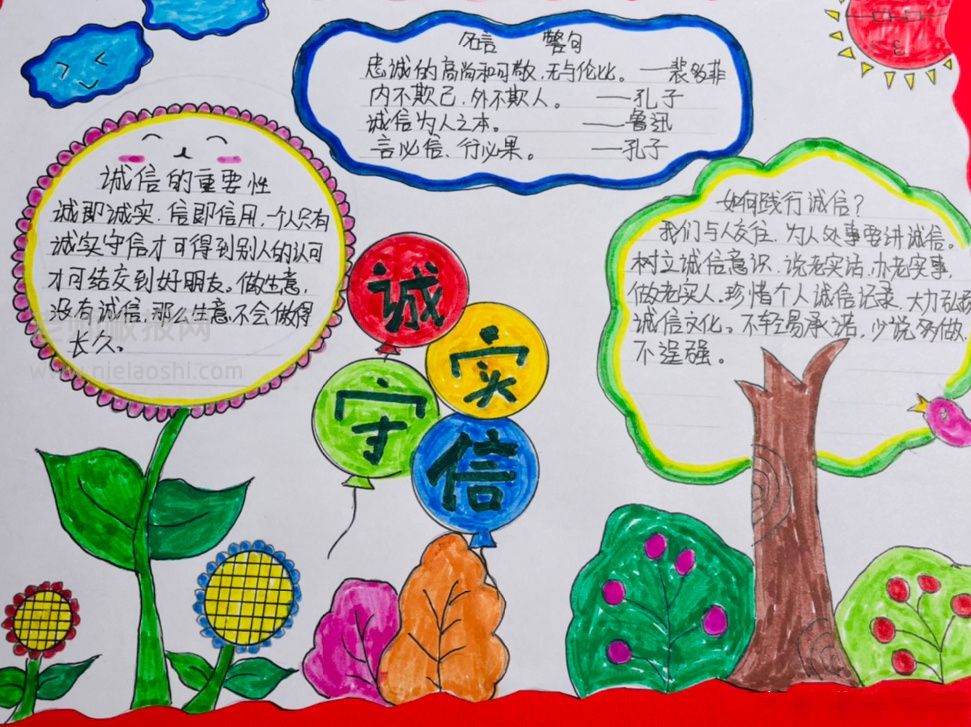 名言 警句
忠诚的高尚和可敬,无与伦比。——裴多菲
内不欺己,外不欺人。——孔子
诚信为人之本。——鲁迅
言必信、行必果。——孔子
诚信的重要性
诚即诚实,信即信用,一个人只有
诚实守信才可得到别人的认可
才可结交到好朋友。做生意,
没有诚信,那么生意不会做得
长久。
www.nielaoshi.com
诚实
守信
如何践行诚信?
我们与人交往,为人处事要讲诚信。
树立诚信意识,说老实话,办老实事,
做老实人。珍惜个人诚信记录,大力弘扬
诚信文化。不轻易承诺,少说多做,
不逞强。